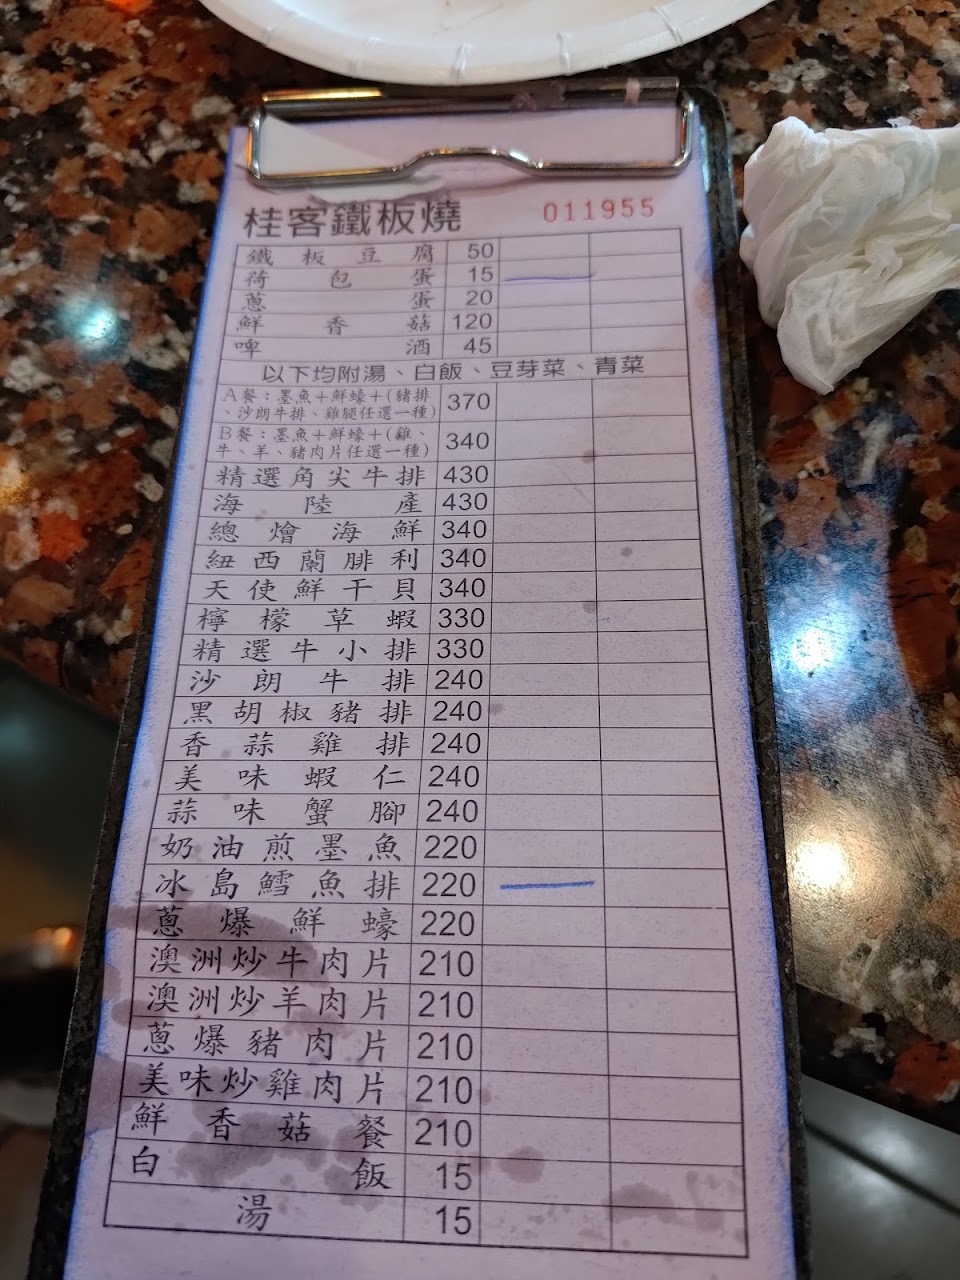 桂客鐵板燒 011955
鐵板豆腐 50
荷包蛋 15
蔥蛋 20
鮮香菇 120
啤酒 45
以下均附湯、白飯、豆芽菜、青菜
A餐：墨魚＋鮮蠔＋(豬排
、沙朗牛排、雞腿任選一種) 370
B餐：墨魚＋鮮蠔＋(雞、
牛、羊、豬肉片任選一種) 340
精選角尖牛排 430
海陸產 430
總燴海鮮 340
紐西蘭腓利 340
天使鮮干貝 340
檸檬草蝦 330
精選牛小排 330
沙朗牛排 240
黑胡椒豬排 240
香蒜雞排 240
美味蝦仁 240
蒜味蟹腳 240
奶油煎墨魚 220
冰島鱈魚排 220
蔥爆鮮蠔 220
澳洲炒牛肉片 210
澳洲炒羊肉片 210
蔥爆豬肉片 210
美味炒雞肉片 210
鮮香菇餐 210
白飯 15
湯 15